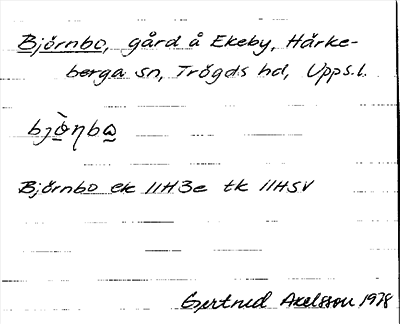 Björnbo, gård å Ekeby, Härke-
berga sn, Trögds hd, Upps.l.
bjö̀ηbω
Björnbo ek 11H3e tk 11HSV
Gertrud Axelsson 1978